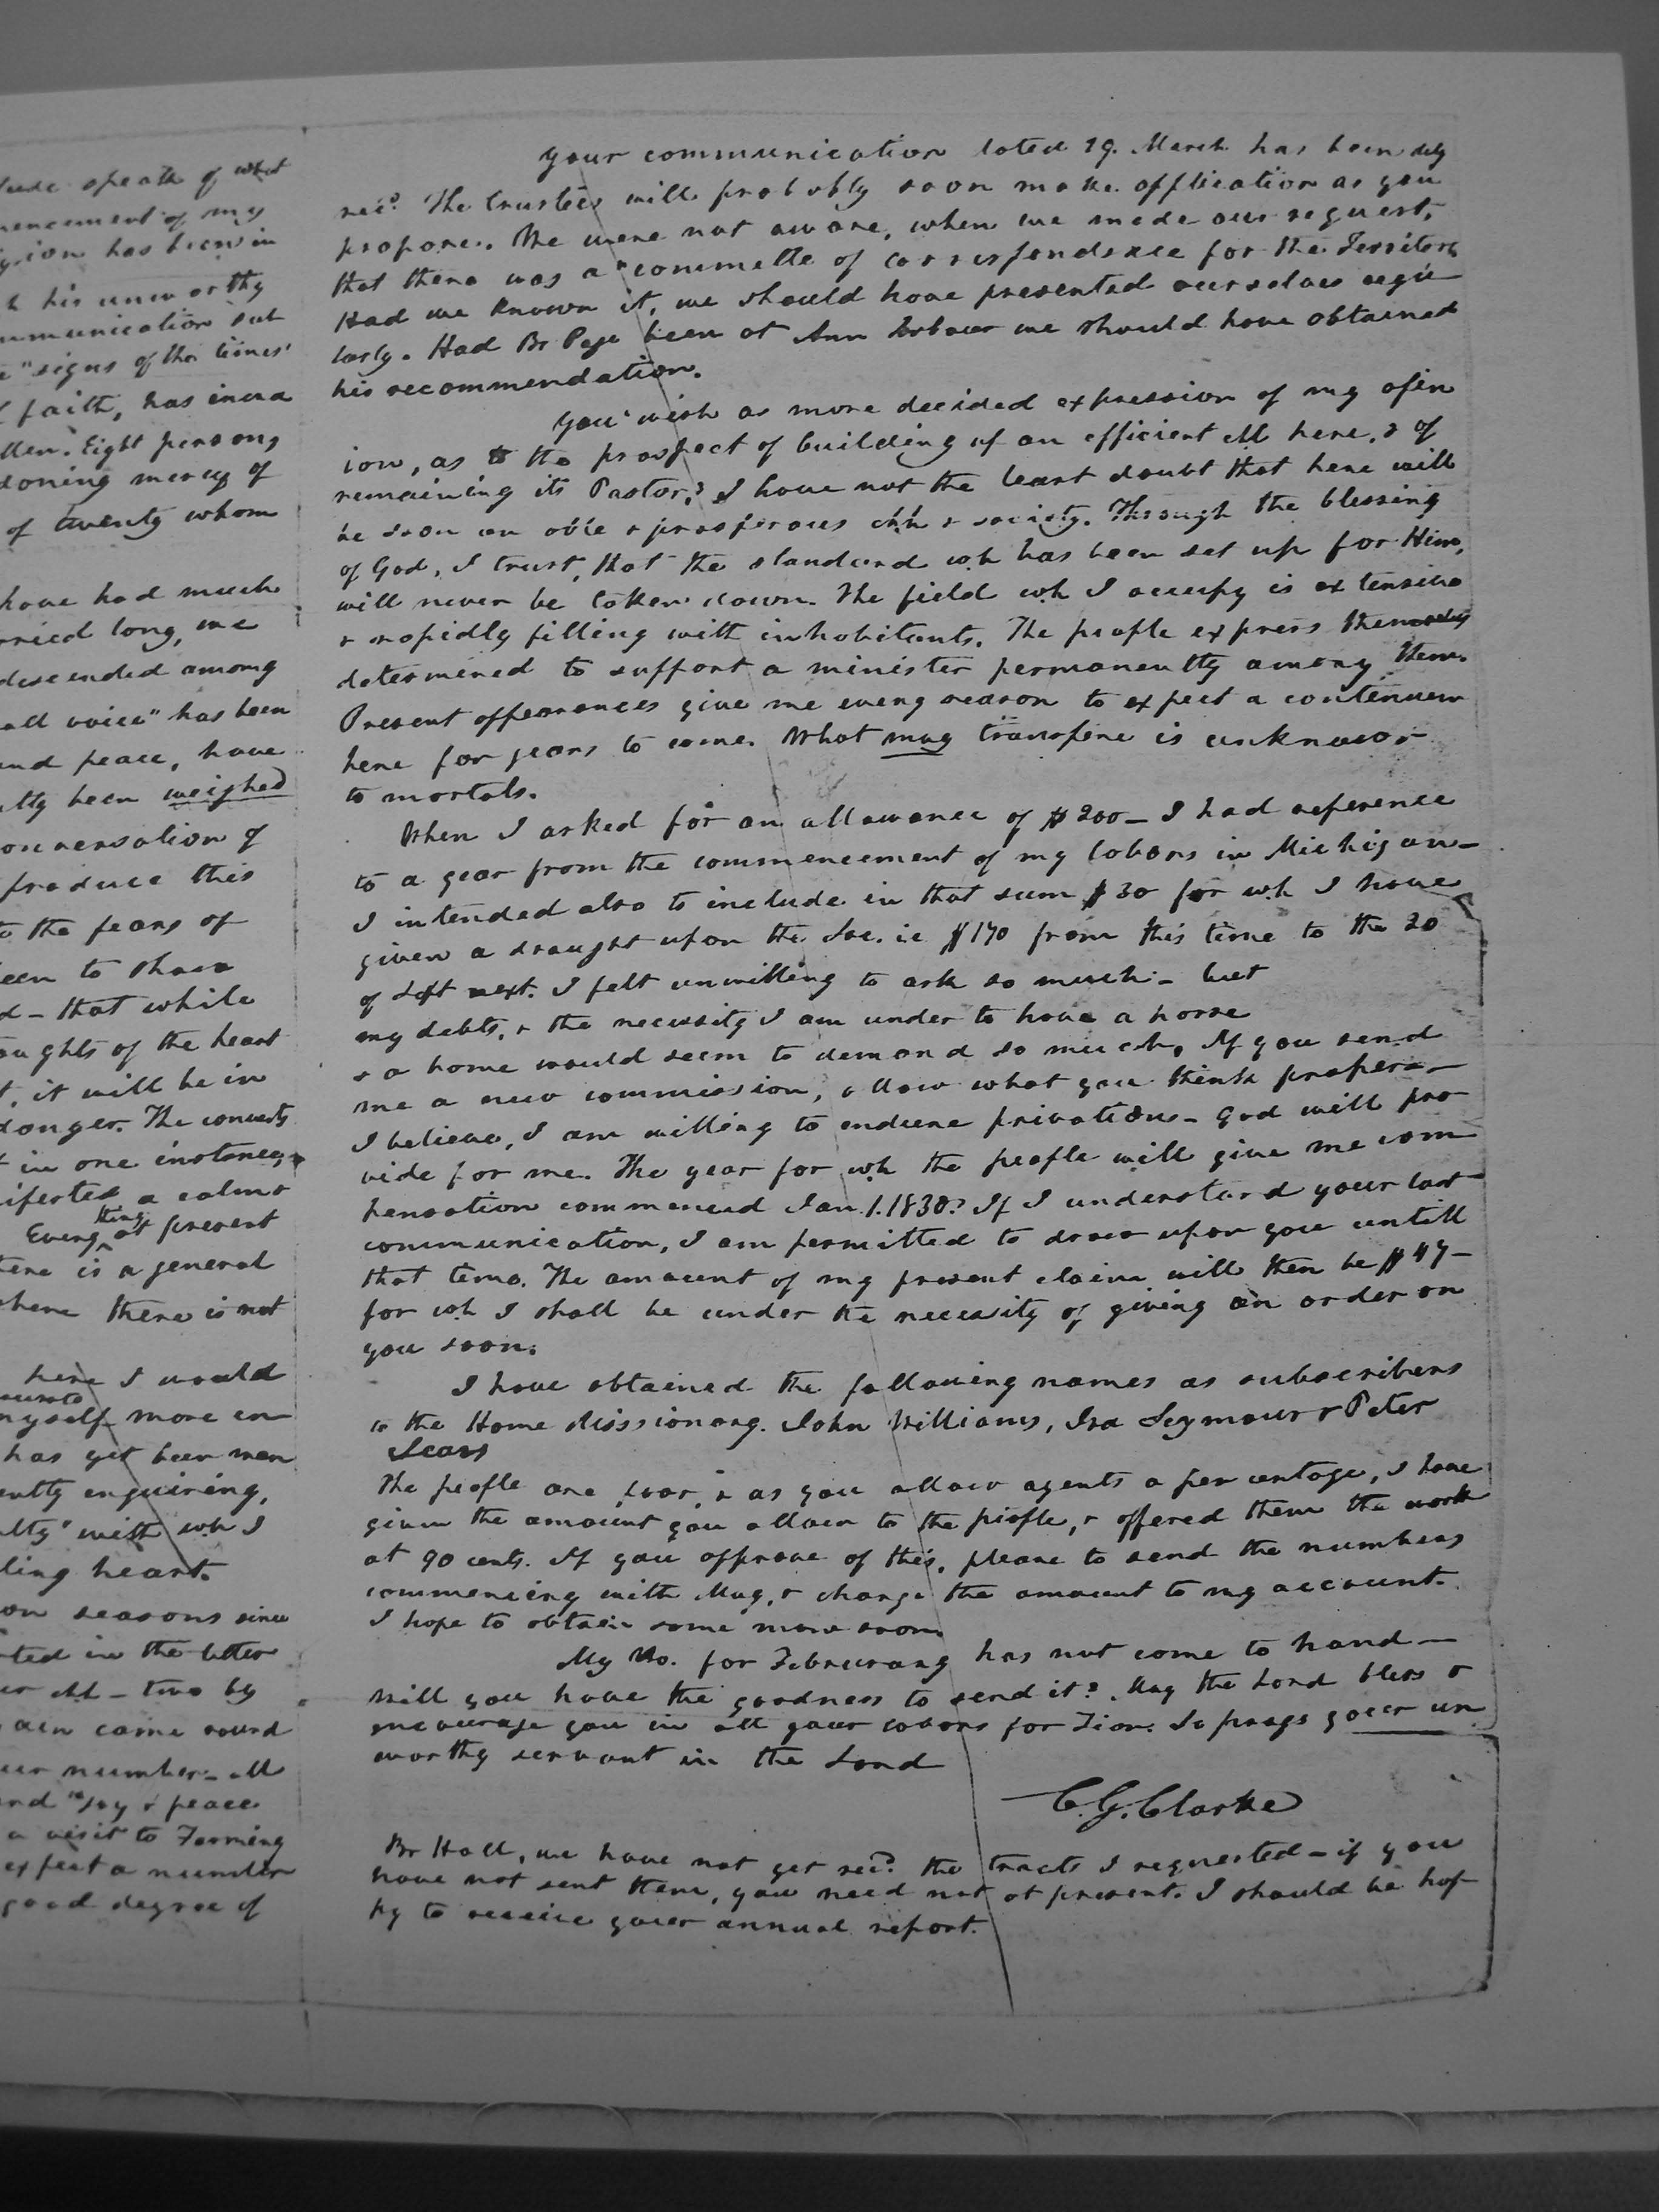 lude speak of what
mencement of my
gion has been in
h his unworthy
mmunication sub
e "signs of the times'
faith, has incre
llen. Eight persons
doning mercy of
of twenty whom
have had much
rried long, we
descended among
all voice" has been
and peace, have
ltly been weighed
onversation of
produce this
to the fears of
een to shew
d - that while
oughts of the heart
t, it will be in
longer. The converts
t in one instance,
ifested a calm &
Every thing at present
here is a general
where there is not
here I would
myself more en
has yet been man
ently enquiring,
lty" with wh I
ling heart.
on seasons since
ted in the better
er ch - two by
again came round
our number - all
and "joy & peace
a visit to Farming
expect a number
good degree of
Your communication dated 19. March has been duly
recd. The trustees will probably soon make application as you
propose. We were not aware, when we made our request,
that there was a "committe of correspondence for the Territory
Had we known it, we should have presented ourselves regu
larly. Had Br Page been at Ann Arbour we should have obtained
his recommendation.
You wish a more decided expression of my opin
ion, as to the prospect of building up an efficient ch here, & of
remaining its Pastor? I have not the least doubt that here will
be soon an able & prosperous chh & society. Through the blessing
of God, I trust, that the standard wh has been set up for Him,
will never be taken down. The field wh I occupy is extensive
& rapidly filling with inhabitants. The people express themselves
determined to support a minister permanently among them.
Present appearances give me every reason to expect a continuew
here for years to come. What may transpire is unknown
to mortals.
When I asked for an allowance of $200 - I had reference
to a year from the commencement of my labors in Michigan -
I intended also to include in that sum $30 for wh I have
given a draught upon the Soc. ie $170 from this time to the 20
of Sept next. I felt unwilling to ask so much - but
my debts, & the necessity I am under to have a horse
& a home would seem to demand so much. If you send
me a new commission, allow what you think proper -
I believe, I am willing to endure privations - God will pro
vide for me. The year for wh the people will give me com
pensation commenced Jan. 1. 1830. If I understand your last
communication, I am permitted to draw upon you untill
that time. The amount of my present claim will then be $47 -
for wh I shall be under the necessity of giving an order on
you soon.
I have obtained the following names as subscribers
to the Home Missionary. John Williams, Ira Seymour & Peter
Sears
The people are poor, & as you allow agents a per centage, I have
given the amount you allow to the people, & offered them the work
at 90 cents. If you approve of this, please to send the numbers
commencing with May, & charge the amount to my account.
I hope to obtain some more soon.
My No. for Februrary has not come to hand -
Will you have the goodness to send it? May the Lord bless &
encourage you in all your labors for Zion. So prays your un
worthy servant in the Lord
C. G. Clarke
Br Hall, we have not yet recd. the tracts I requested - if you
have not sent them, you need not at present. I should be hap
py to receive your annual report.